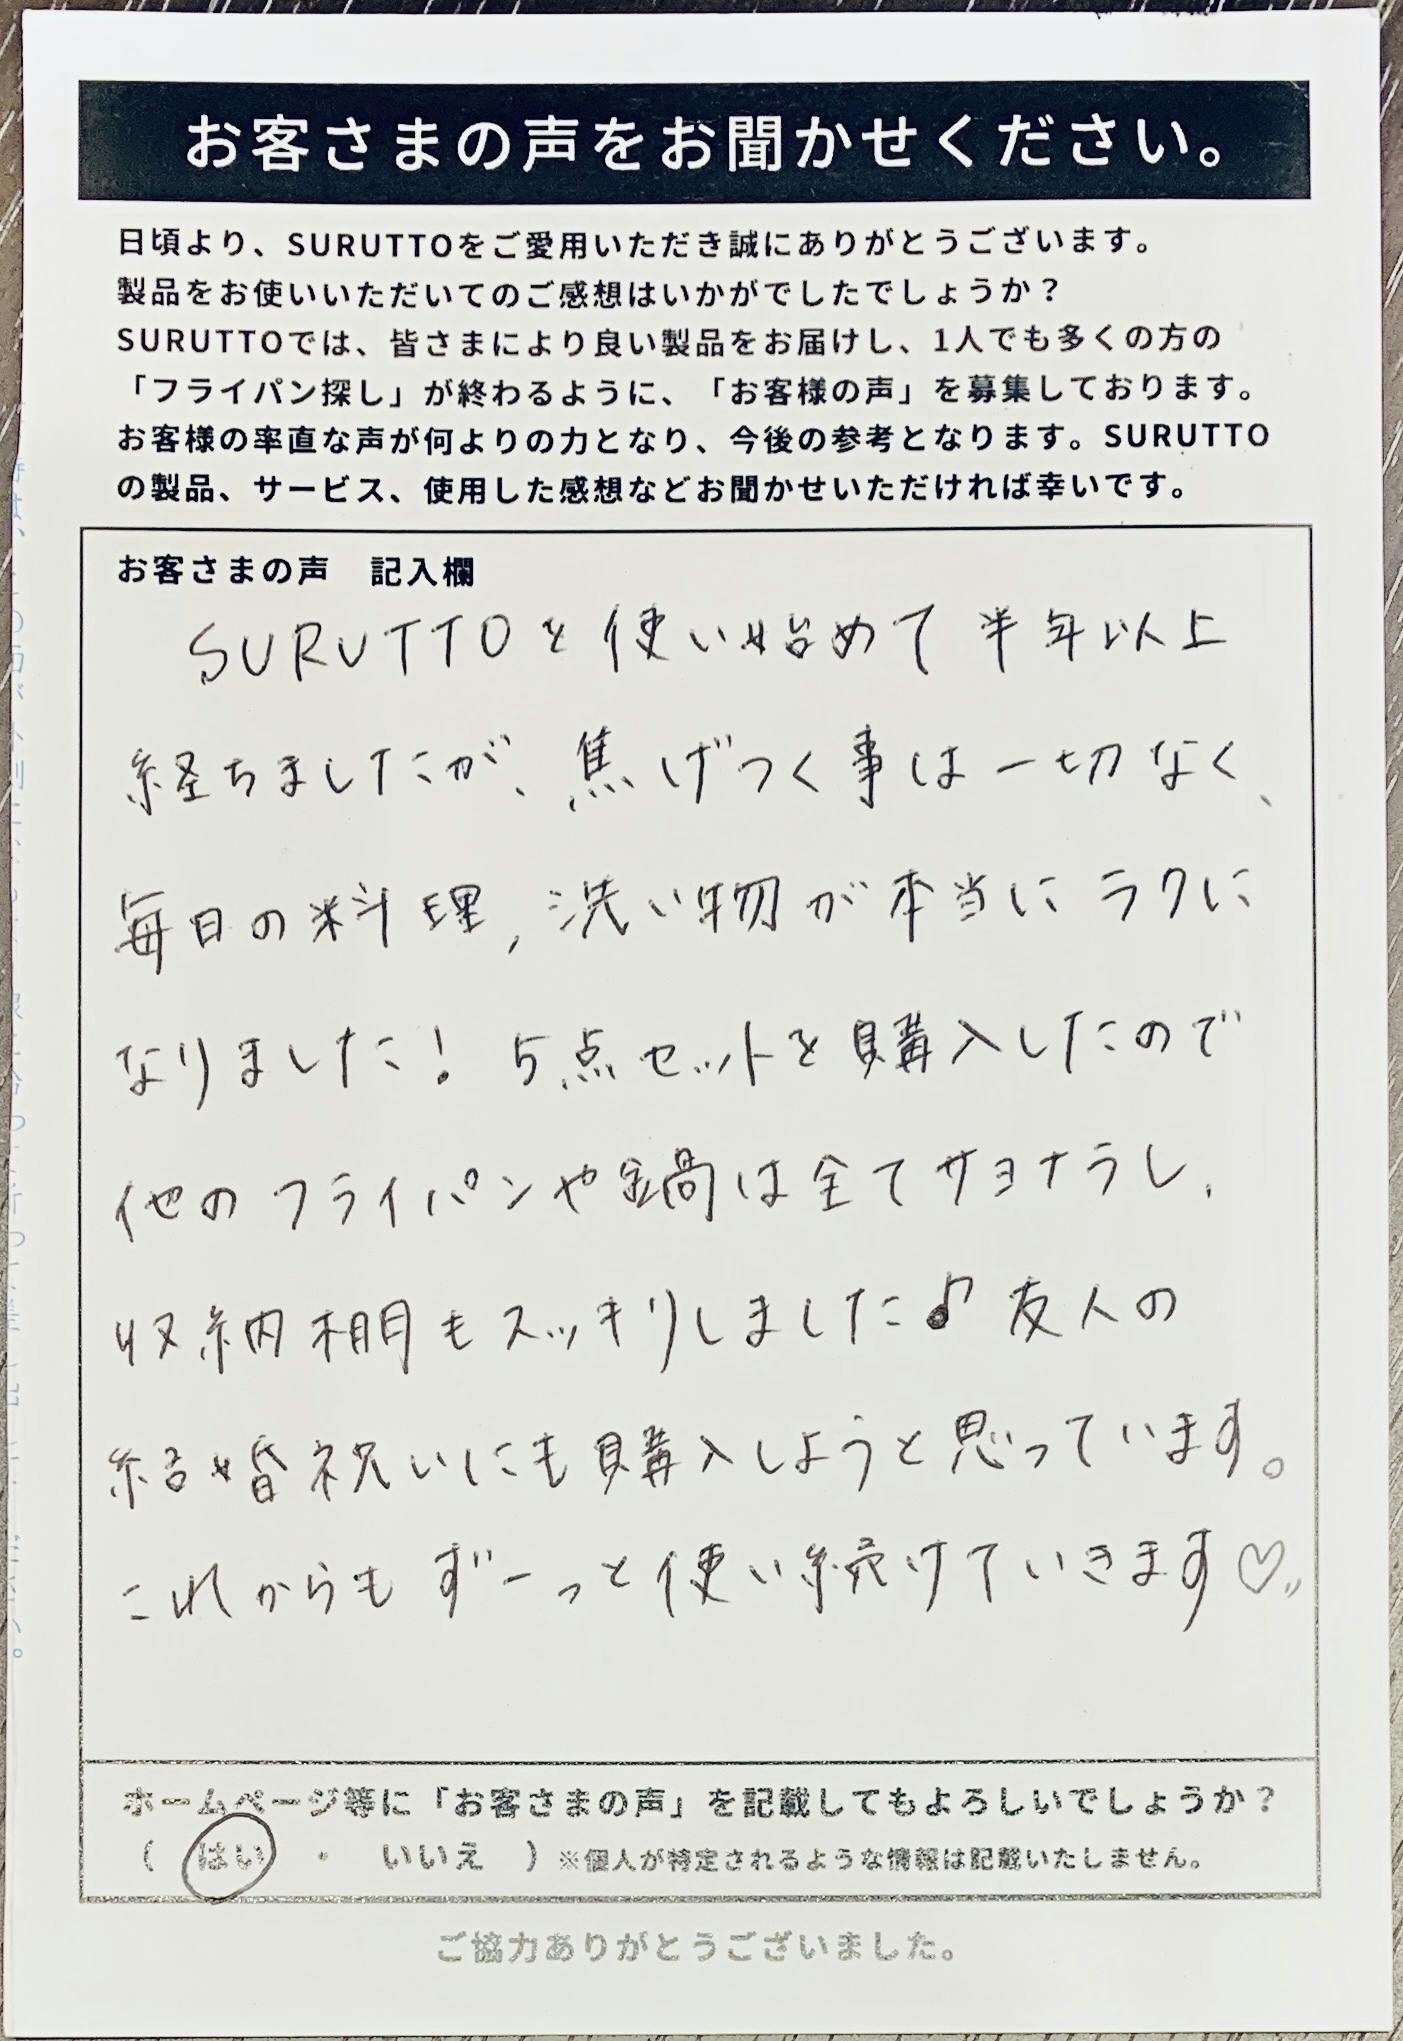 お客さまの声をお聞かせください。
日頃より、SURUTTOをご愛用いただき誠にありがとうございます。
製品をお使いいただいてのご感想はいかがでしたでしょうか？
SURUTTOでは、皆さまにより良い製品をお届けし、1人でも多くの方の
「フライパン探し」が終わるように、「お客様の声」を募集しております。
お客様の率直な声が何よりの力となり、今後の参考となります。SURUTTO
の製品、サービス、使用した感想などお聞かせいただければ幸いです。
お客さまの声　記入欄
SURUTTOを使い始めて半年以上
経ちましたが、焦げつく事は一切なく、
毎日の料理,洗い物が本当にラクに
なりました！5点セットを購入したので
他のフライパンや鍋は全てサヨナラし、
収納棚もスッキリしました♪友人の
結婚祝いにも購入しようと思っています。
これからもずーっと使い続けていきます♡〃
ホームページ等に「お客さまの声」を記載してもよろしいでしょうか？
（　はい　・　いいえ　）※個人が特定されるような情報は記載いたしません。
ご協力ありがとうございました。